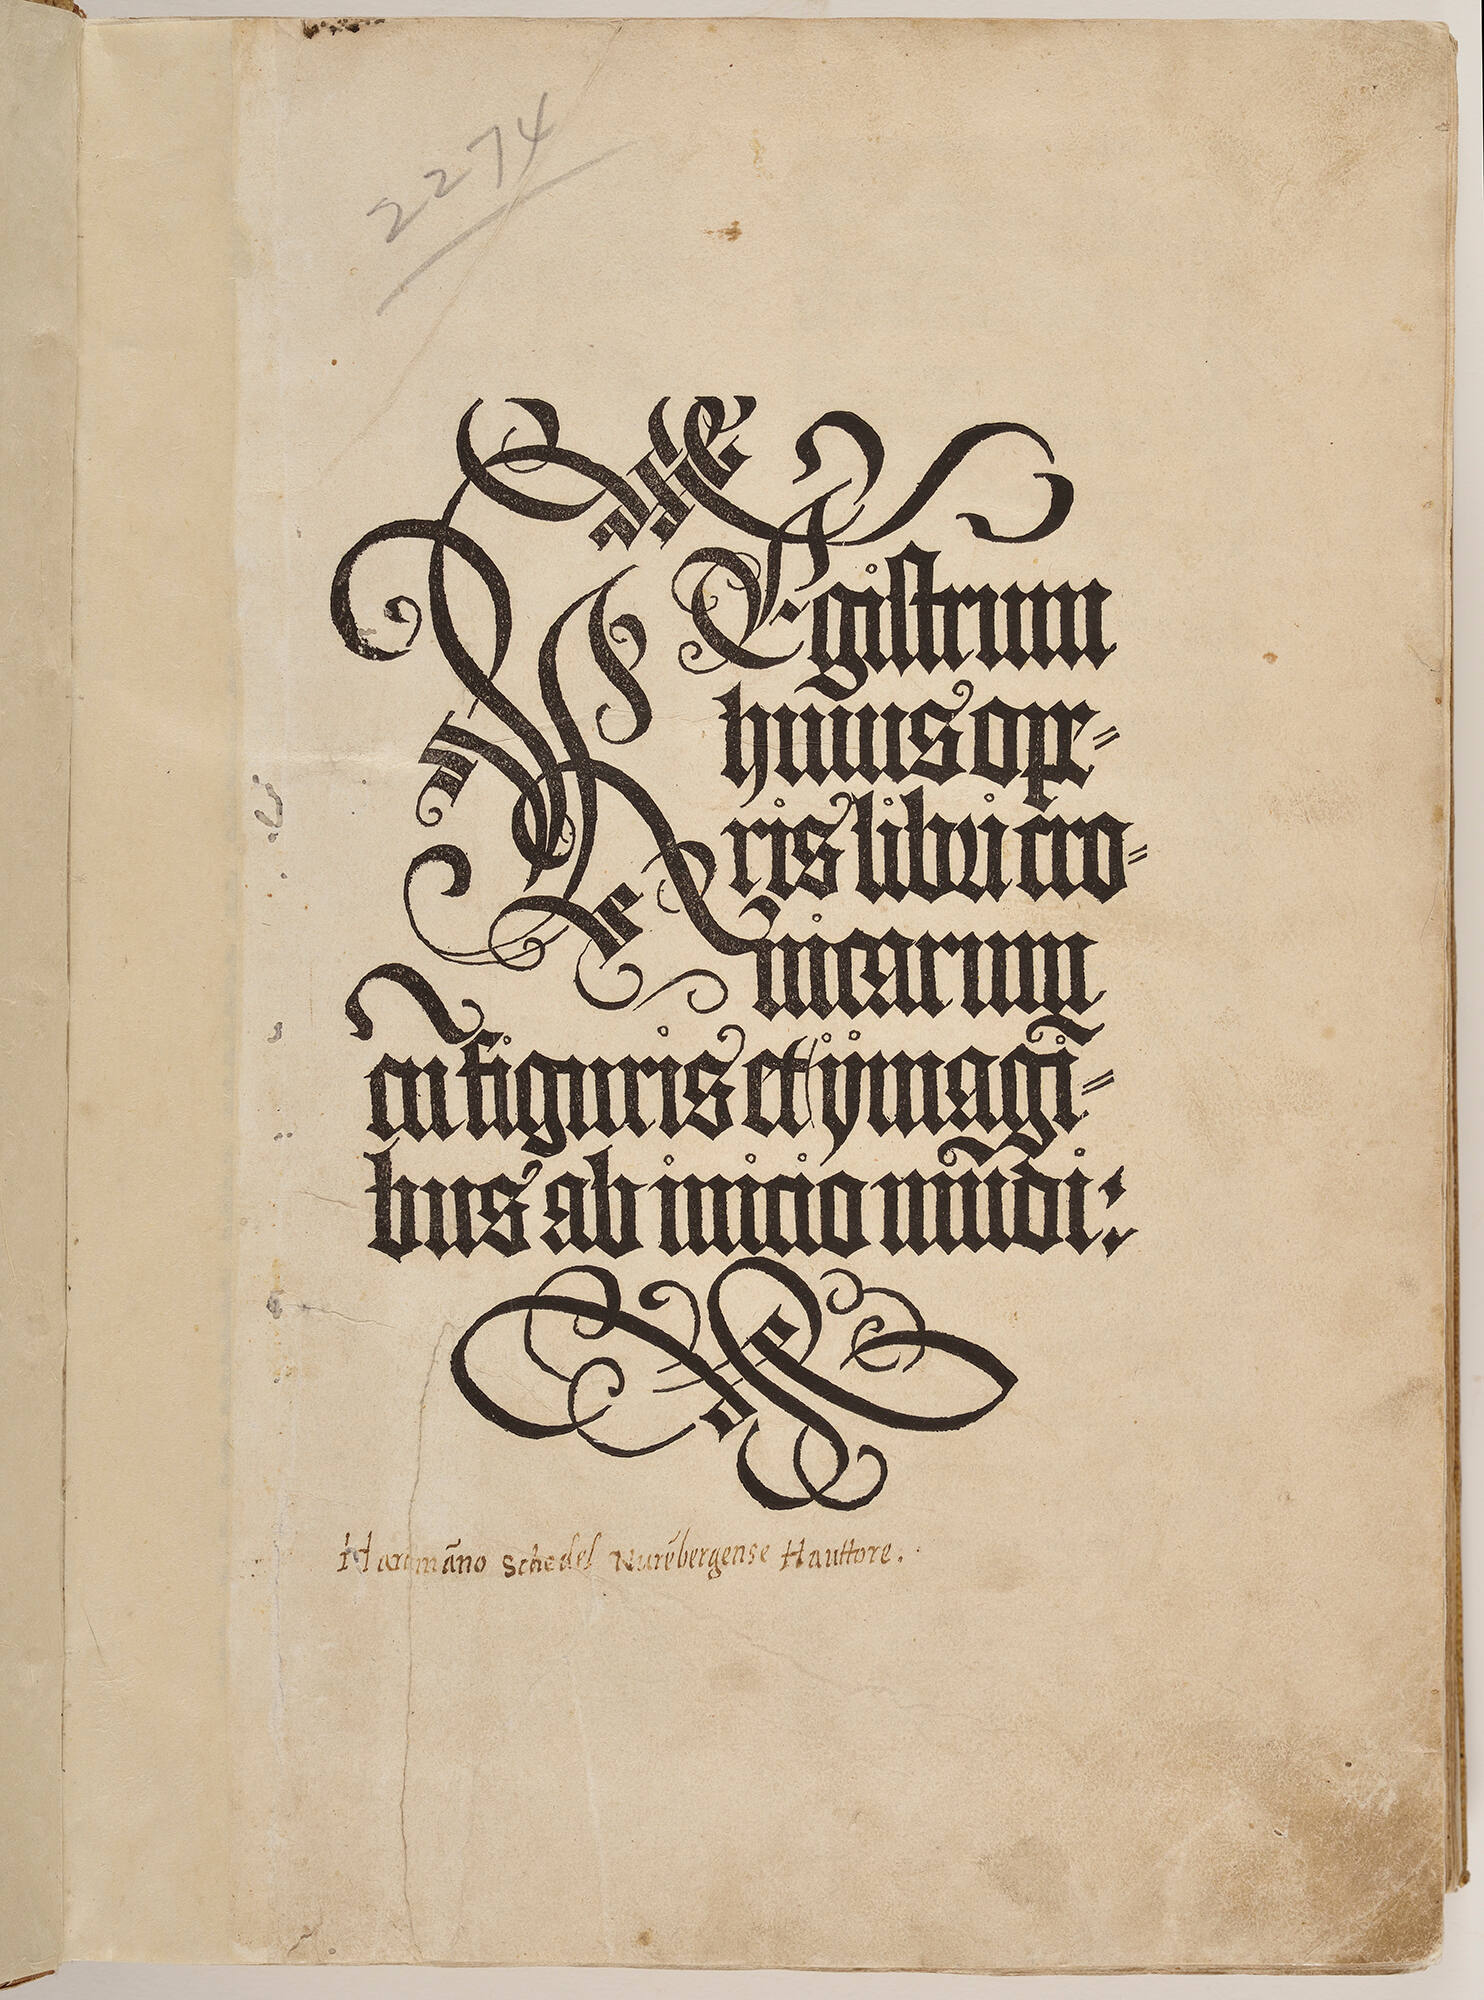 2274
REgistrum
huius ope=
ris libri cro=
nicarum
cū figuris et ymagī=
bus ab inicio mūdi:
Hartmāno Schedel Nurēbergense Hauttore.